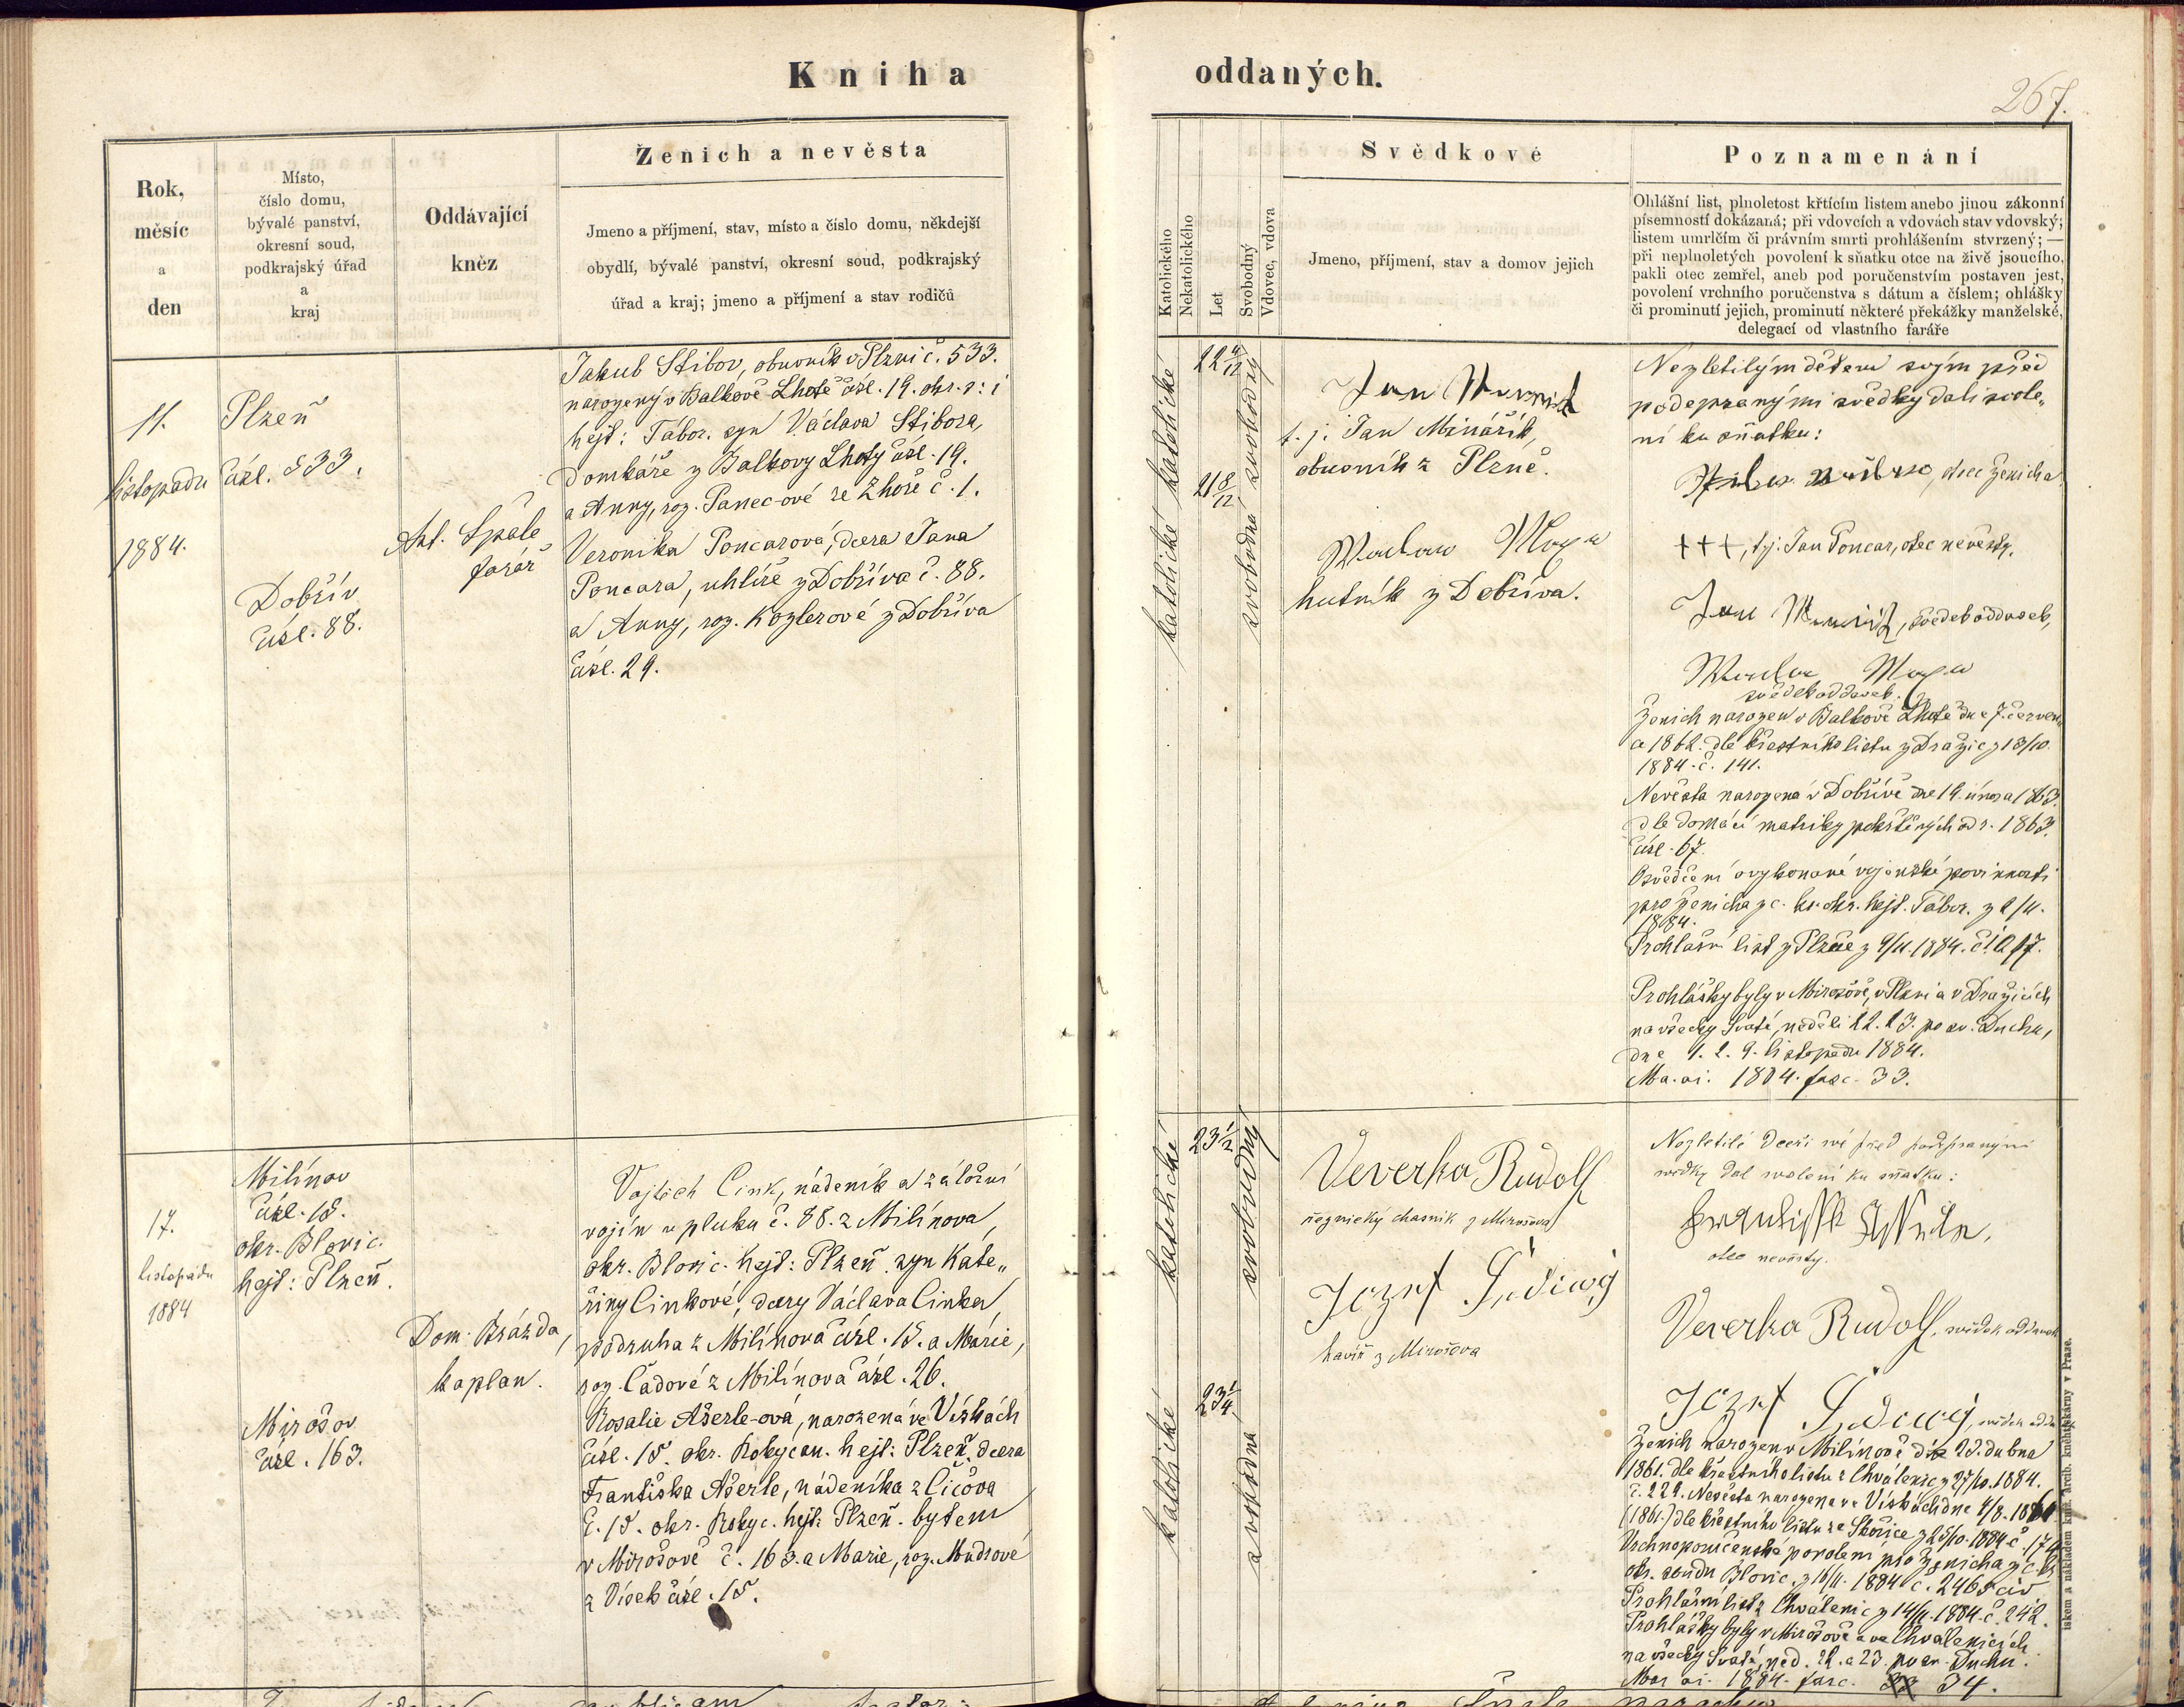 Kniha oddaných.
267.
Rok,
měsíc
a
den
Místo,
číslo domu,
bývalé panství,
okresní soud,
podkrajský úřad
a
kraj
Oddávající
kněz
Ženich a nevěsta
Jmeno a příjmení, stav, místo a číslo domu, někdejší
obydlí, bývalé panství, okresní soud, podkrajský
úřad a kraj; jmeno a příjmení a stav rodičů
Katolického
Nekatolického
Let
Svobodný
Vdovec, vdova
Svědkové
Jmeno, příjmení, stav a domov jejich
Poznamenání
Ohlášní list, plnoletost křtícím listem anebo jinou zákonní
písemností dokázaná; při vdovcích a vdovách stav vdovský;
listem umrlčím či právním smrti prohlášením stvrzený; —
při neplnoletých povolení k sňatku otce na živě jsoucího,
pakli otec zemřel, aneb pod poručenstvím postaven jest,
povolení vrchního poručenstva s dátum a číslem; ohlášky
či prominutí jejich, prominutí některé překážky manželské,
delegací od vlastního faráře
11.
listopadu
1884.
Plzeň
čísl. 533.
Dobřív
čísl. 88.
Ant. Špale
farář
Jakub Stibor, obuvník v Plzni č. 533.
narozený v Balkově Lhotě čísl. 19. okr. i
hejt: Tábor. syn Václava Stibora,
domkáře z Balkovy Lhoty čísl. 19.
a Anny, roz. Panec-ové ze Zhoře č. 1.
Veronika Poncarová, dcera Jana
Poncara, uhlíře z Dobříva č. 88.
a Anny, roz. Kozlerové z Dobříva
čísl. 29.
katolické
katolické
22 4/12
21 8/12
svobodný
svobodná
Jan
t. j. Jan Minářík,
obuvník z Plzně.
hutník z Dobříva.
Nezletilým dětem svým před
podepsanými svědky dali svole„
ní ku sňatku:
otec ženicha
+++, tj. Jan Poncar, otec nevěsty.
Jan , svědek oddavek,
svědek oddavek.
Ženich narozen v Balkově Lhotě dne 7. červen„
a 1862. dle křestního listu z Dražic z 13/10.
1884. č. 141.
Nevěsta narozená v Dobřívě dne 19. února 1863.
dle domácí matriky pokřtěných od r. 1863.
čísl. 67.
Osvědčení o vykonané vojenské povinnosti
pro ženicha z c. kr. okr. hejt. Tábor. z
1884.
Prohlášní list z Plzně z 9/11. 1884. č.
Prohlášky byly v Mirošově, v Plzni a v Dražicích
na všecky Svaté, neděli 22. 23. po sv. Duchu,
dne 1. 2. 9. listopadu 1884.
1884. fasc. 33.
17.
listopadu
1884
Milínov
čísl. 15.
okr. Blovic.
hejt: Plzeň.
Mirošov
čísl. 163.
Dom. Brázda,
kaplan.
Vojtěch Cink, nádeník a záložní
vojín u pluku č. 88. z Milínova,
okr. Blovic. hejt: Plzeň. syn Kate„
řiny Cinkové, dcery Václava Cinka,
podruha z Milínova čísl. 15. a Marie,
roz. Čadové z Milínova čísl. 26.
Rosalie Ašerle-ová, narozená ve Vískách
čísl. 15. okr. Rokycan. hejt: Plzeň. dcera
Františka Ašerle, nádeníka z Cičova
č. 15. okr. Rokyc. hejt: Plzeň. bytem
v Mirošově č. 163. a Marie, roz. Mudrové
z Vísek čísl. 15.
katolické
katolické
23 1/2
23 1/4
svobodný
svobodná
Veverka Rudolf
řeznický chasník z Mirošova
Jozef
havíř z Mirošova
Nezletilé dceři své před podepsanými
svědky dal svolení ku sňatku:
otec nevěsty.
Veverka Rudolf, svědek oddavek
Jozef , svědek
Ženich narozen v Milínově dne 23. dubna
1861. dle křestního listu z Chválenic z 27/10. 1884.
č. 229. Nevěsta narozena ve Vískách dne
(1861.) dle křestního listu ze Skořice z 25/10. 1884 č. 174
Vrchnoporučenské povolení pro ženicha z c. k.
okr. soudu Blovic. 1884 č. 2465 civ
Prohlášní list z Chválenic z 14/11. 1884. č. 242.
Prohlášky byly v Mirošově a ve Chválenicích
na všecky Svaté, ned. 22. a 23. po sv. Duchu.
1884. fasc. 34.